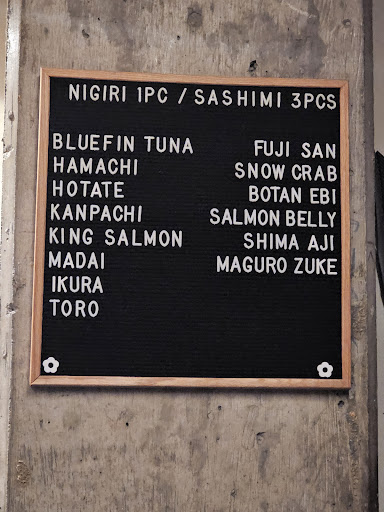 NIGIRI 1PC / SASHIMI 3PCS
BLUEFIN TUNA
HAMACHI
HOTATE
KANPACHI
KING SALMON
MADAI
IKURA
TORO
FUJI SAN
SNOW CRAB
BOTAN EBI
SALMON BELLY
SHIMA AJI
MAGURO ZUKE